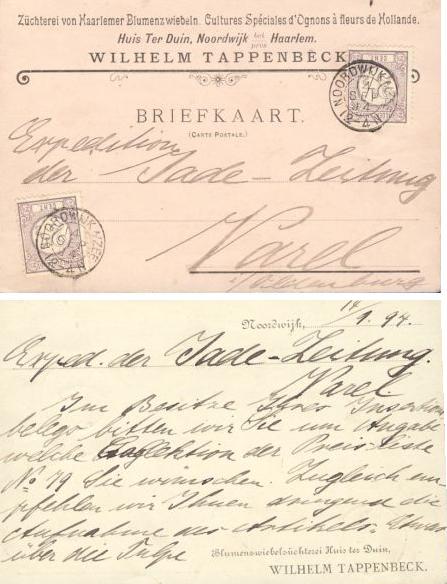 Züchterei von Haarlemer Blumenzwiebeln. Cultures Spéciales d'Ognons à fleurs de Hollande.
Huis Ter Duin, Noordwijk bei près Haarlem.
WILHELM TAPPENBECK
BRIEFKAART.
(CARTE POSTALE.)
Expedition
der Jade-Zeitung
Varel
i/Oldenburg
NOORDWIJK
NOORDWIJK-ZEE
Noordwijk, 14/9. 94.
Exped. der Jade-Zeitung.
Varel
Im Besitze Ihres Insertions
belege bitten wir Sie um Angabe
welche Collektion der Preis-liste
No 79 Sie wünschen. Zugleich em
pfehlen wir Ihnen dringend die
Aufnahme des Artikels: Etwas
über die Tulpe
Blumenzwiebelzüchterei Huis ter Duin,
WILHELM TAPPENBECK.